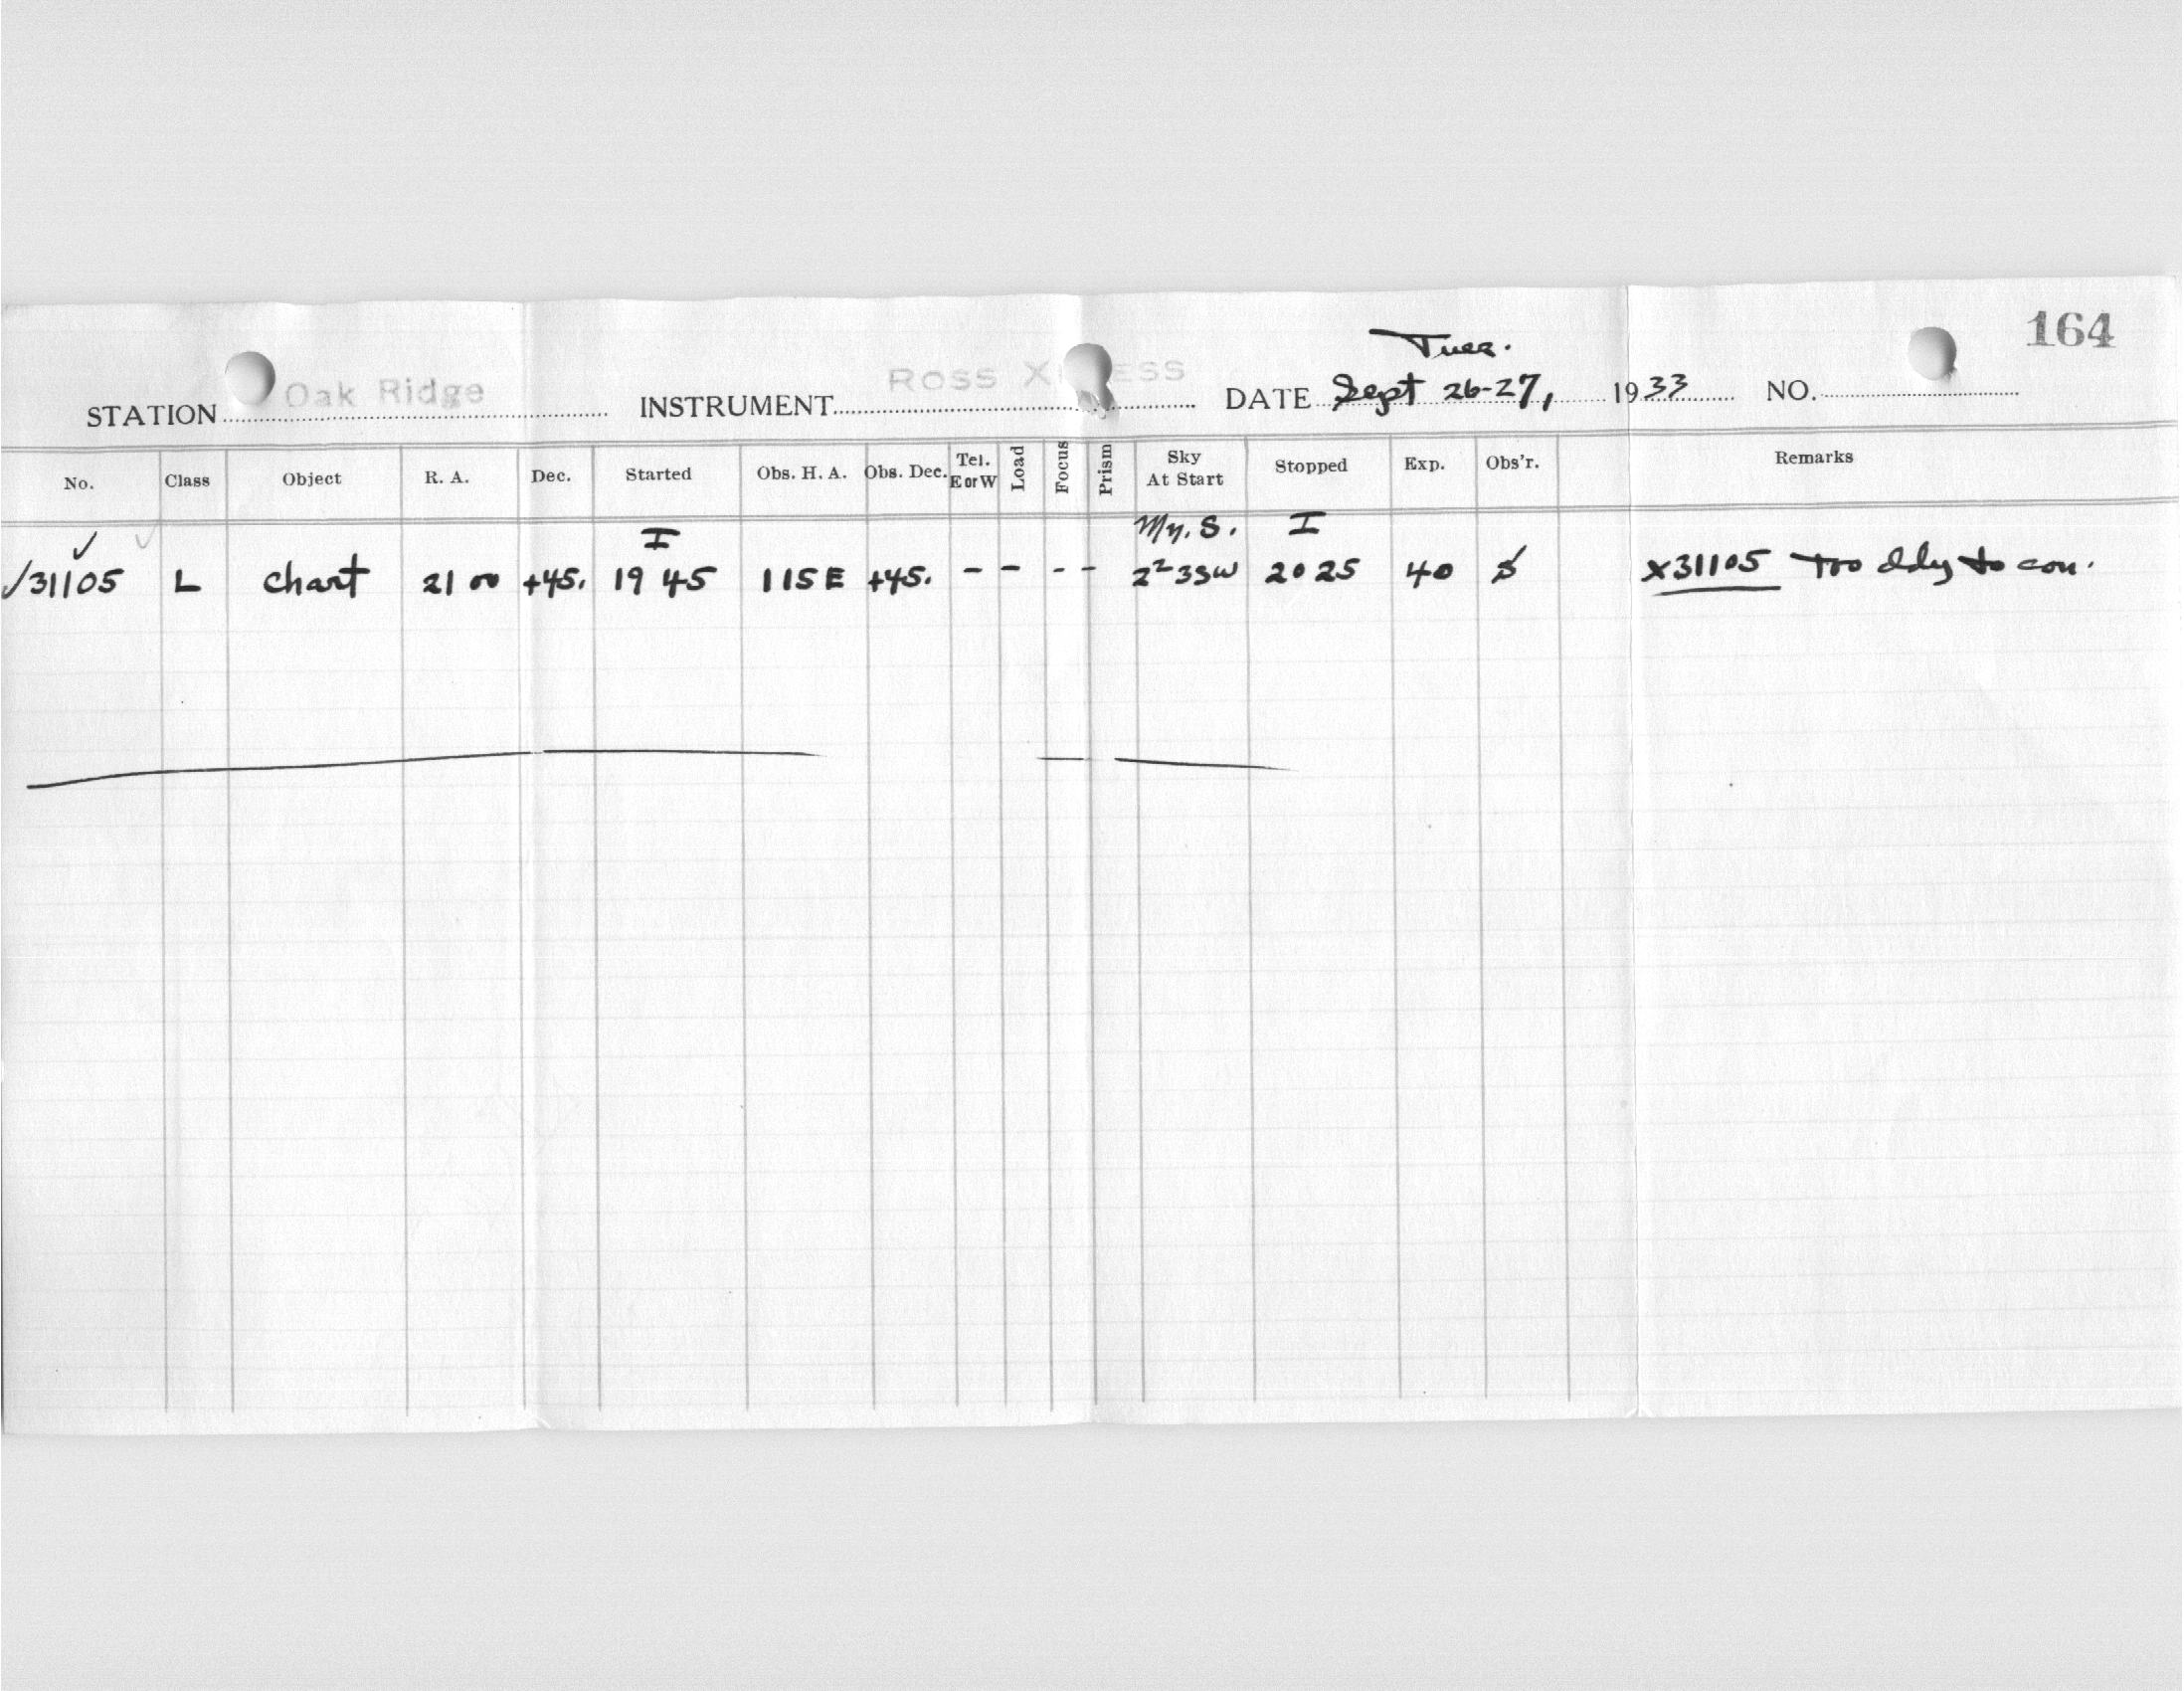 164
Tues.
STATION Oak Ridge INSTRUMENT Ross X ESS DATE Sept 26-27, 1933 NO.
No. Class Object R. A. Dec. Started Obs. H. A. Obs. Dec. Tel. E or W Load Focus Prism Sky At Start Stopped Exp. Obs'r. Remarks
I My. S. I
31105 L chart 21 00 +45. 19 45 115 E +45. - - - - 2² 3SW 20 25 40 x31105 Too cldy to con.